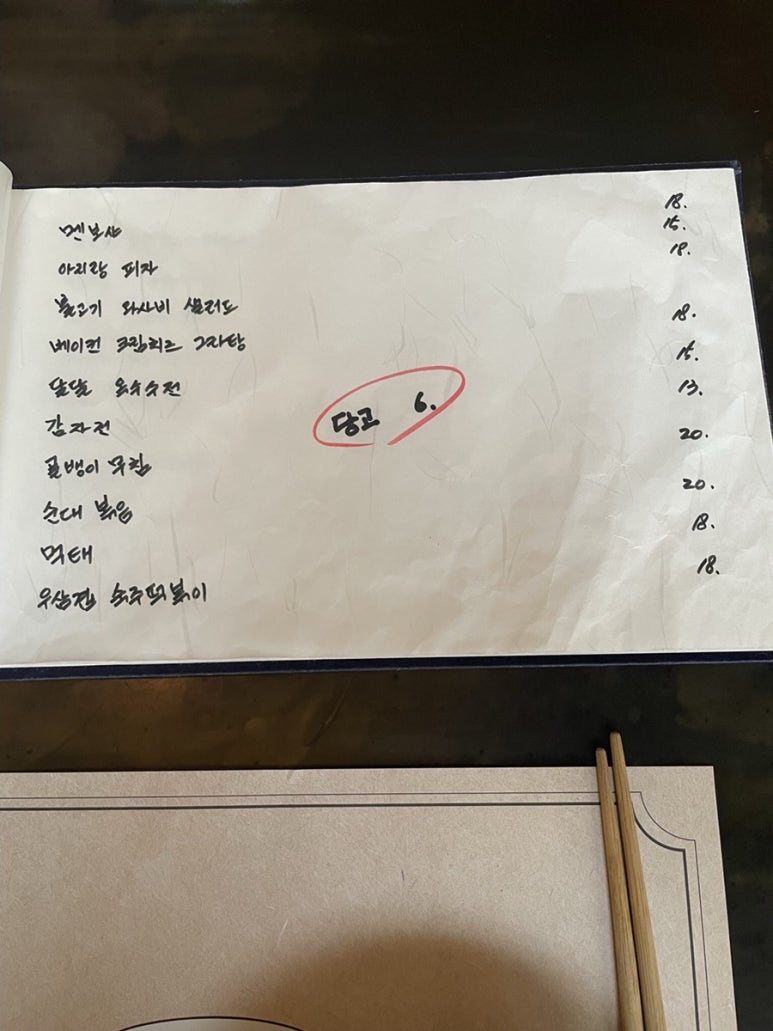 멘보샤 18.
아리랑 피자 15.
불고기 와사비 샐러드 18.
베이컨 크림치즈 그라탕 18.
달달 옥수수전 15.
당고 6.
감자전 13.
골뱅이 무침 20.
순대 볶음 20.
먹태 18.
우삼겹 숙주떡볶이 18.